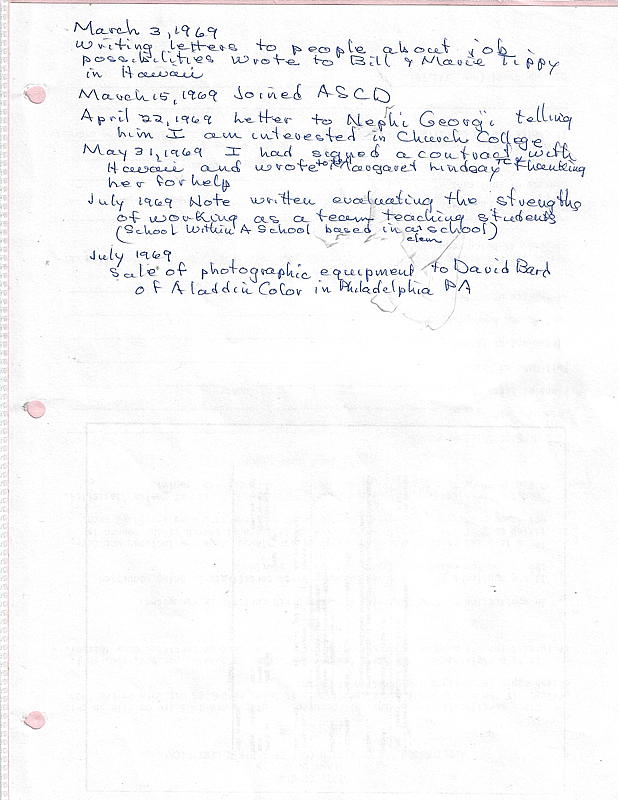 March 3, 1969
Writing letters to people about job
possibilities Wrote to Bill & Marie Tippy
in Hawaii
March 15, 1969 Joined ASCD
April 22, 1969 Letter to Nephi Georgi telling
him I am interested in Church College
May 31, 1969 I had signed a contract with
Hawaii and wrote to Margaret Lindsay thanking
her for help
July 1969 Note written evaluating the strengths
of working as a team teaching students
(School Within A School based in a school)
elem
July 1969
Sale of photographic equipment to David Bard
of Aladdin Color in Philadelphia PA